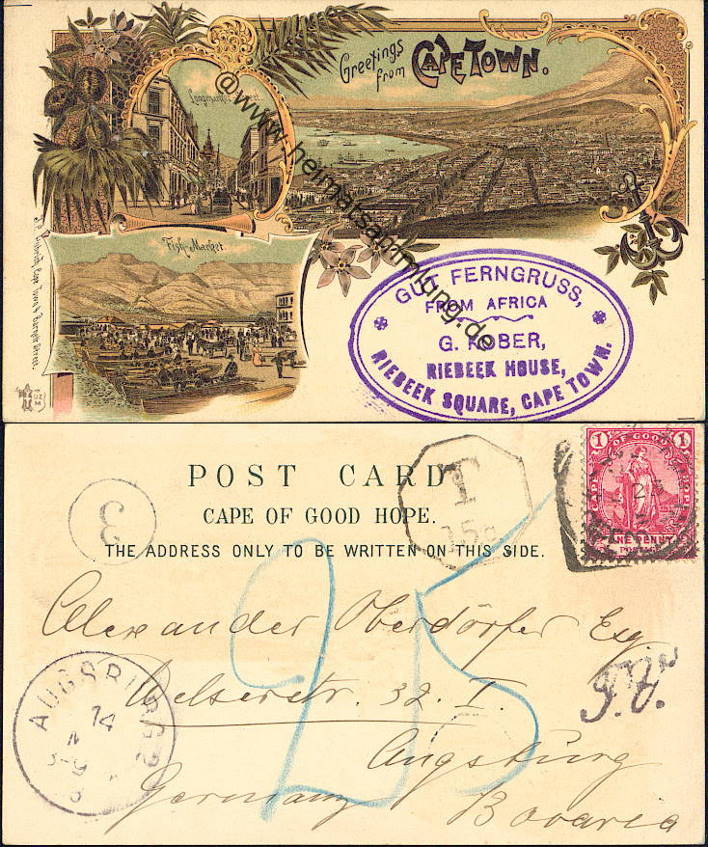 Greetings
from CAPE TOWN.
Fish-Market.
@www.heimatsammlung.de
GUT FERNGRUSS,
FROM AFRICA
G. KOBER,
RIEBEEK HOUSE,
RIEBEEK SQUARE, CAPE TOWN.
POST CARD
CAPE OF GOOD HOPE.
THE ADDRESS ONLY TO BE WRITTEN ON THIS SIDE.
3
T
15c
1 OF GOOD 1
ONE PENNY
POSTAGE
25
Alexander Oberdörfer Esq
Welserstr. 32. I.
Augsburg
Germany Bavaria
AUGSBURG 2
14